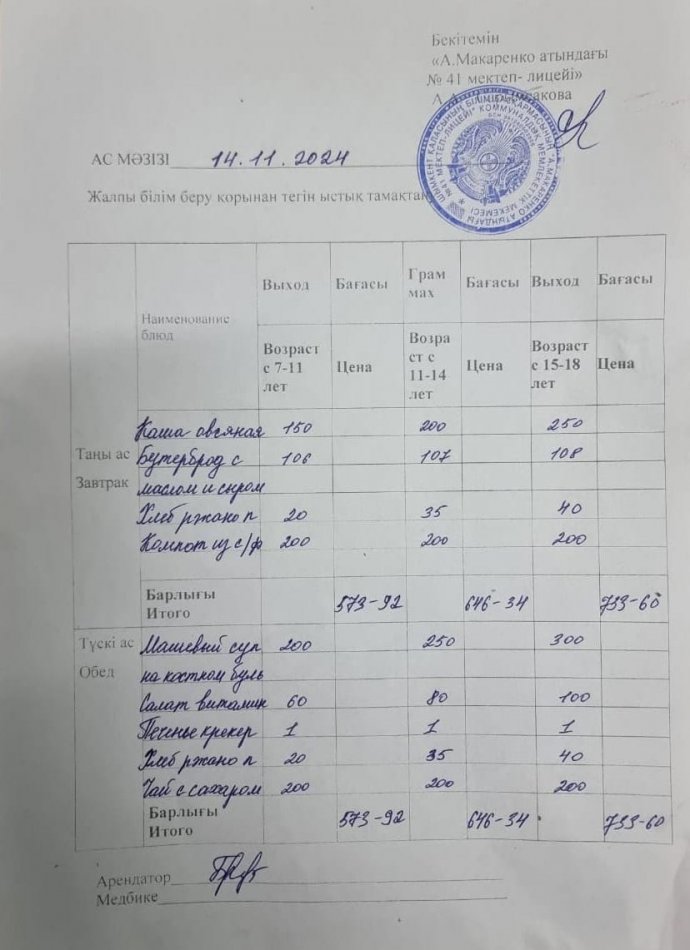 Бекітемін
«А.Макаренко атындағы
№ 41 мектеп- лицейі»
АС МӘЗІЗІ 14.11.2024
Жалпы білім беру қорынан тегін ыстық тамақтану
Наименование блюд Выход Бағасы Грам мах Бағасы Выход Бағасы
Возраст с 7-11 лет Цена Возра ст с 11-14 лет Цена Возраст с 15-18 лет Цена
Таңы ас
Завтрак
Каша овсяная 150 200 250
Бутерброд с 106 107 108
маслом и сыром
Хлеб ржано п 20 35 40
Компот из с/ф 200 200 200
Барлығы
Итого 573-92 646-34 733-60
Түскі ас
Обед
Машевый суп 200 250 300
на костном буль
Салат витамин 60 80 100
Печенье крекер 1 1 1
Хлеб ржано п 20 35 40
Чай с сахаром 200 200 200
Барлығы
Итого 573-92 646-34 733-60
Арендатор
Медбике